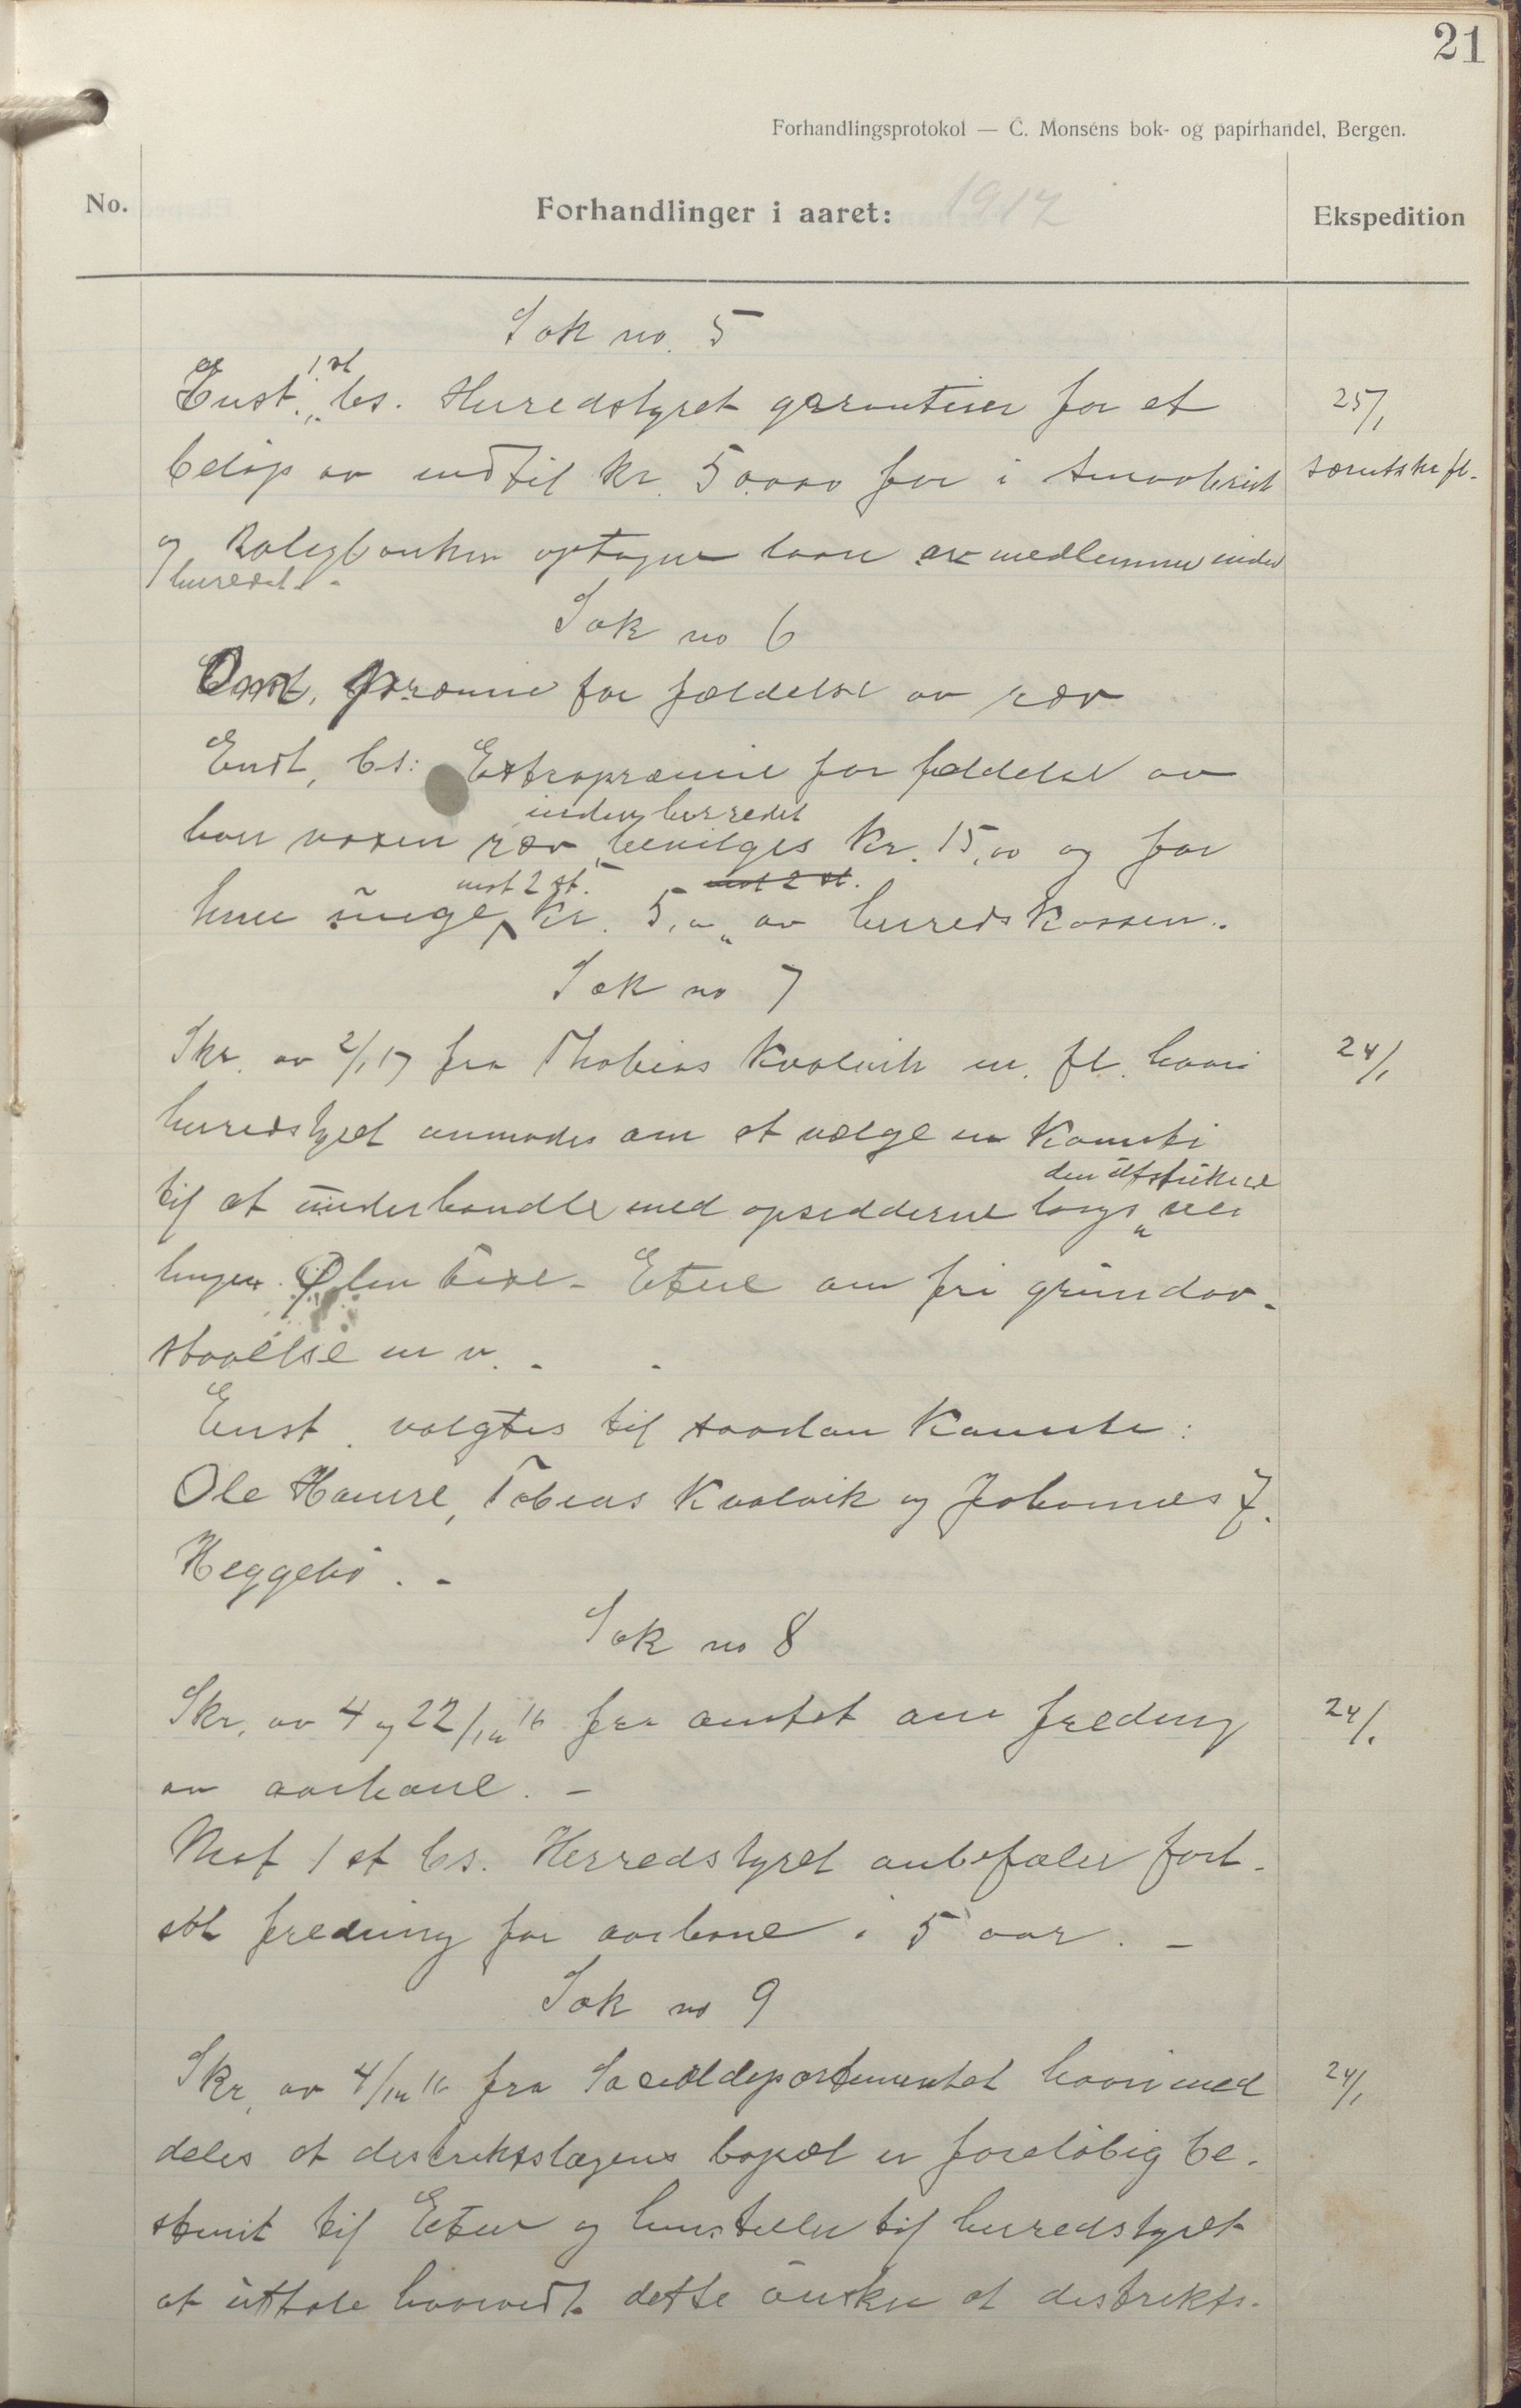 21
Forhandlingsprotokol — C. Monsens bok- og papirhandel, Bergen.
No.
Forhandlinger i aaret: 1917
Ekspedition
Sak no. 5
Enst. bs. Herredstyret garanterer for et
25/1
beløp av indtil kr. 50000 for i Smaabruk
særutskrift.
og Boligbanken optagne laan av medlemmer inden
herredet.
Sak no 6
Præmie for fældelse av ræv
Enst, bs: Extrapræmie for fældelse av
inden herredet
hver voxen ræv bevilges kr. 15,00 og for
mot 2 st. mot 2 st.
hver unge kr. 5,00 av herredskassen.
Sak no 7
Skr. av 2/1 17 fra Thobias Kvalvik m. fl. hvori
24/1
herredstyret anmodes om at vælge en Komite
den utstukne
til at underhandle med opsidderne langs vei
linjen Ølen kirke - Etne om fri grundav-
staaelse m v. -
Enst. valgtes til saadan Komite:
Ole Hamre, Tobias Kvalvik og Johannes J.
Heggebø. -
Sak no 8
Skr, av 4 og 22/12 16 fra amtet om freding
24/1
av aarhane. -
Mot 1 st bs. Herredstyret anbefaler fort-
sat fredning for aarhane i 5 aar. -
Sak no 9
Skr, av 4/12 16 fra Socialdepartementet hvori med
24/1
deles at distriktslægens bopæl er foreløbig be-
stemt til Etne og henstiller til herredstyret
at uttale hvorvidt dette ønsker at distrikts-